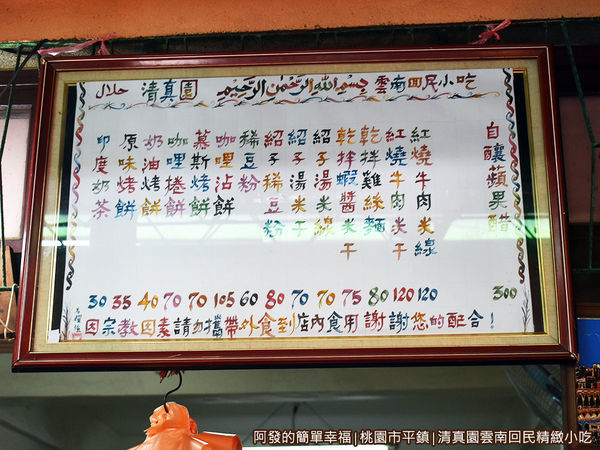 حلال 清真園 بسم الله الرحمن الرحيم 雲南回民小吃
自釀蘋果醋 300
紅燒牛肉米線 120
紅燒牛肉米干 120
乾拌雞絲麵 80
乾拌蝦醬米干 75
紹子湯米線 70
紹子湯米干 70
紹子稀豆粉 80
稀豆粉 60
咖哩沾餅 105
慕斯烤餅 70
咖哩捲餅 70
奶油烤餅 40
原味烤餅 35
印度奶茶 30
因宗教因素請勿攜帶外食到店內食用 謝謝您的配合！
阿發的簡單幸福|桃園市平鎮|清真園雲南回民精緻小吃